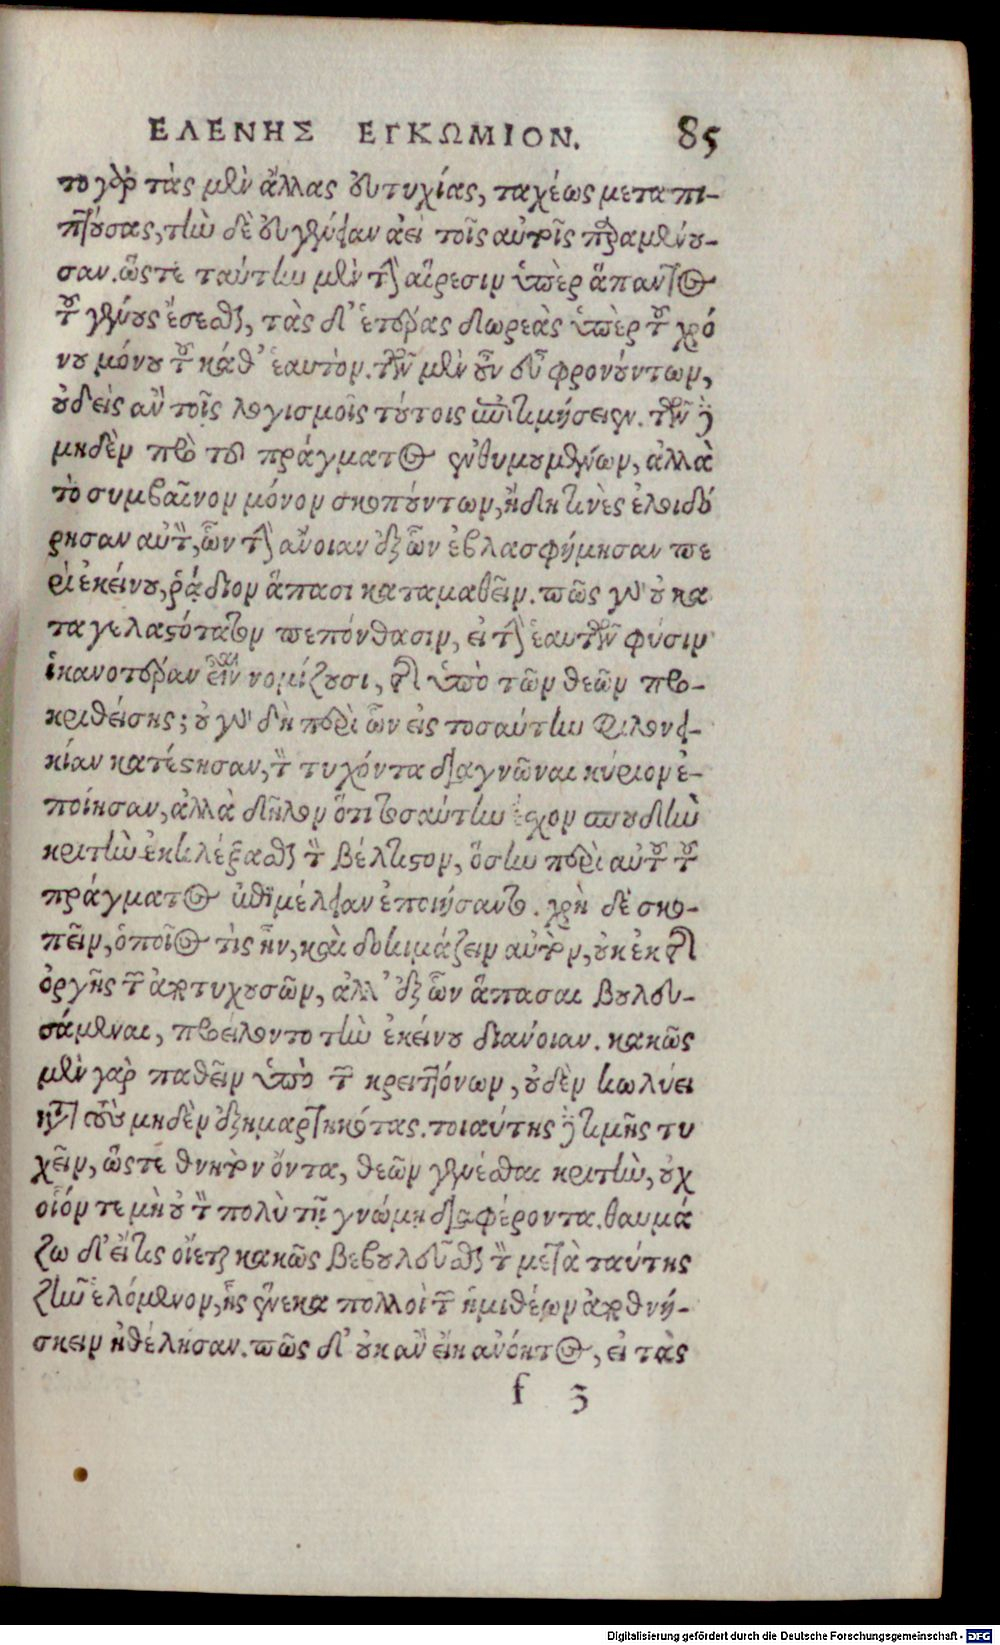 ΕΛΕΝΗΣ ΕΓΚΩΜΙΟΝ. 85
το γὰρ τὰς μὲν ἄλλας εὐτυχίας, ταχέως μεταπι-
πτούσας, τὴν δὲ εὐγένειαν ἀεὶ τοῖς αὐτοῖς παραμένου-
σαν. ὥστε ταύτην μὲν τὴν αἵρεσιν ὑπὲρ ἅπαντος
τοῦ γένους ἔσεσθαι, τὰς δ' ἑτέρας δωρεὰς ὑπὲρ τοῦ χρό
νου μόνου τοῦ καθ' ἑαυτόν. τῶν μὲν οὖν εὖ φρονούντων,
οὐδεὶς ἂν τοῖς λογισμοῖς τούτοις ἐπιτιμήσειεν. τῶν δὲ
μηδὲν πρὸ τοῦ πράγματος ἐνθυμουμένων, ἀλλὰ
τὸ συμβαῖνον μόνον σκοπούντων, ἤδη τινὲς ἐλοιδό
ρησαν αὐτόν, ὧν τὴν ἄνοιαν ἐξ ὧν ἐβλασφήμησαν πε
ρὶ ἐκείνου, ῥᾴδιον ἅπασι καταμαθεῖν. πῶς γὰρ οὐ κα
ταγελαστότατον πεπόνθασιν, εἰ τὴν ἑαυτῶν φύσιν
ἱκανωτέραν εἶναι νομίζουσι, τῆς ὑπὸ τῶν θεῶν προ-
κριθείσης; οὐ γὰρ δὴ περὶ ὧν εἰς τοσαύτην φιλονει-
κίαν κατέστησαν, τὸν τυχόντα διαγνῶναι κύριον ἐ-
ποίησαν, ἀλλὰ δῆλον ὅτι τοσαύτην ἔσχον σπουδὴν
κριτὴν ἐκλέξασθαι τὸν βέλτιστον, ὅσην περὶ αὐτοῦ τοῦ
πράγματος ἐπιμέλειαν ἐποιήσαντο. χρὴ δὲ σκο-
πεῖν, ὁποῖος τις ἦν, καὶ δοκιμάζειν αὐτὸν, οὐκ ἐκ τῆς
ὀργῆς τῶν ἀποτυχουσῶν, ἀλλ' ἐξ ὧν ἅπασαι βουλευ-
σάμεναι, προείλοντο τὴν ἐκείνου διάνοιαν. κακῶς
μὲν γὰρ παθεῖν ὑπὸ τῶν κρειττόνων, οὐδὲν κωλύει
καὶ τοὺς μηδὲν ἐξημαρτηκότας. τοιαύτης δὲ τιμῆς τυ
χεῖν, ὥστε θνητὸν ὄντα, θεῶν γενέσθαι κριτὴν, οὐχ
οἷόν τε μὴ οὐ τὸν πολὺ τῇ γνώμῃ διαφέροντα. θαυμά
ζω δ' εἴ τις οἴεται κακῶς βεβουλεῦσθαι τὸν μετὰ ταύτης
ζῆν ἑλόμενον, ἧς ἕνεκα πολλοὶ τῶν ἡμιθέων ἀποθνή-
σκειν ἠθέλησαν. πῶς δ' οὐκ ἂν εἴη ἀνόητος, εἰ τὰς
f 3
Digitalisierung gefördert durch die Deutsche Forschungsgemeinschaft - DFG